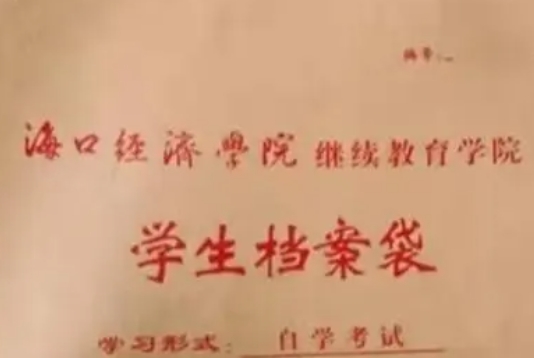 编号：
海口经济學院 继续教育学院
学生档案袋
学习形式：自学考试